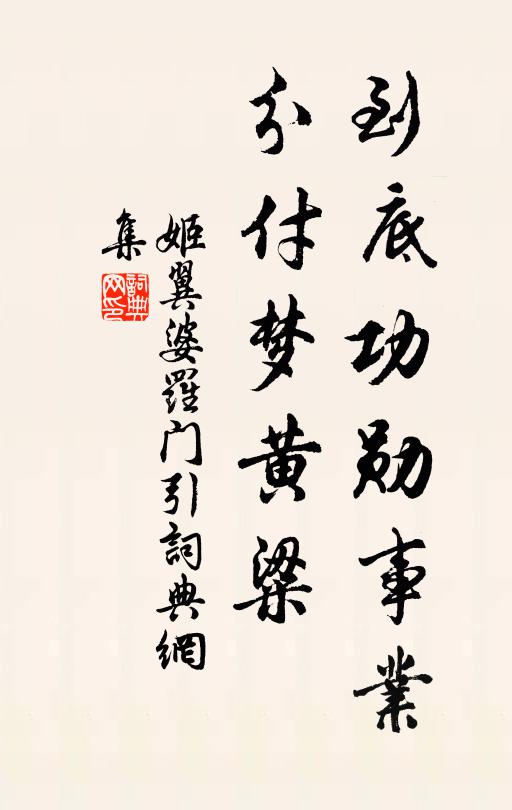 到底功勋事業
分付梦黄粱
姬翼婆羅门引詞典網
集
詞典
网印